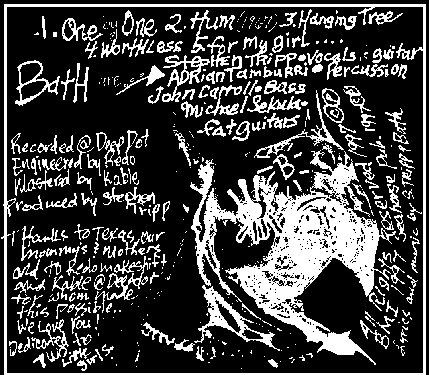 1. One by One 2. Hum (1987) 3. Hanging Tree
4. Worthless 5. for My girl....
Bath are
Stephen Tripp • vocals : guitar
Adrian Tambukri • Percussion
John Carroll • Bass
Michael Sekula •
fat guitars
Recorded @ Deep Dot
Engineered by Redo
Mastered by Kable
Produced by Stephen
Tripp
Thanks to Texas, our
mommy's & Mothers
and to Redo makeshift
and Kable @ Deepdot
for whom made
this possible..
We Love You!
Dedicated to
Two little
girls.
B
All Rights Reserved
BMI 1997 Seahorse
Lyrics and music by S. Tripp/Bath